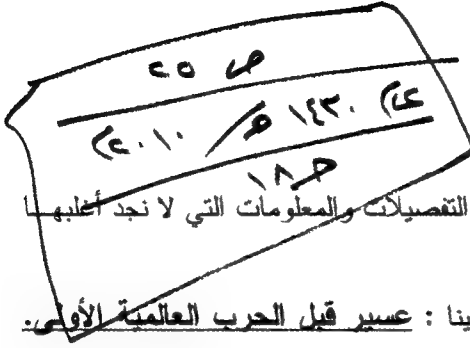 ص ٢٥
١٤٣٠ هـ / ٢٠١٠م)
ج١٨
التفصيلات والمعلومات التي لا نجد أغلبهـا
ينا : عسير قبل الحرب العالمية الأولى.